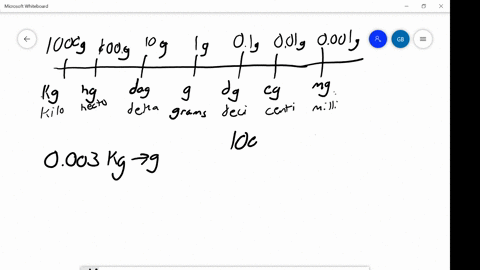 Microsoft Whiteboard
GB
1000g 100g 10g 1g 0.1g 0.01g 0.001g
Kg hg dag g dg cg mg
Kilo hecto deka grams deci centi milli
100
0.003 Kg → g